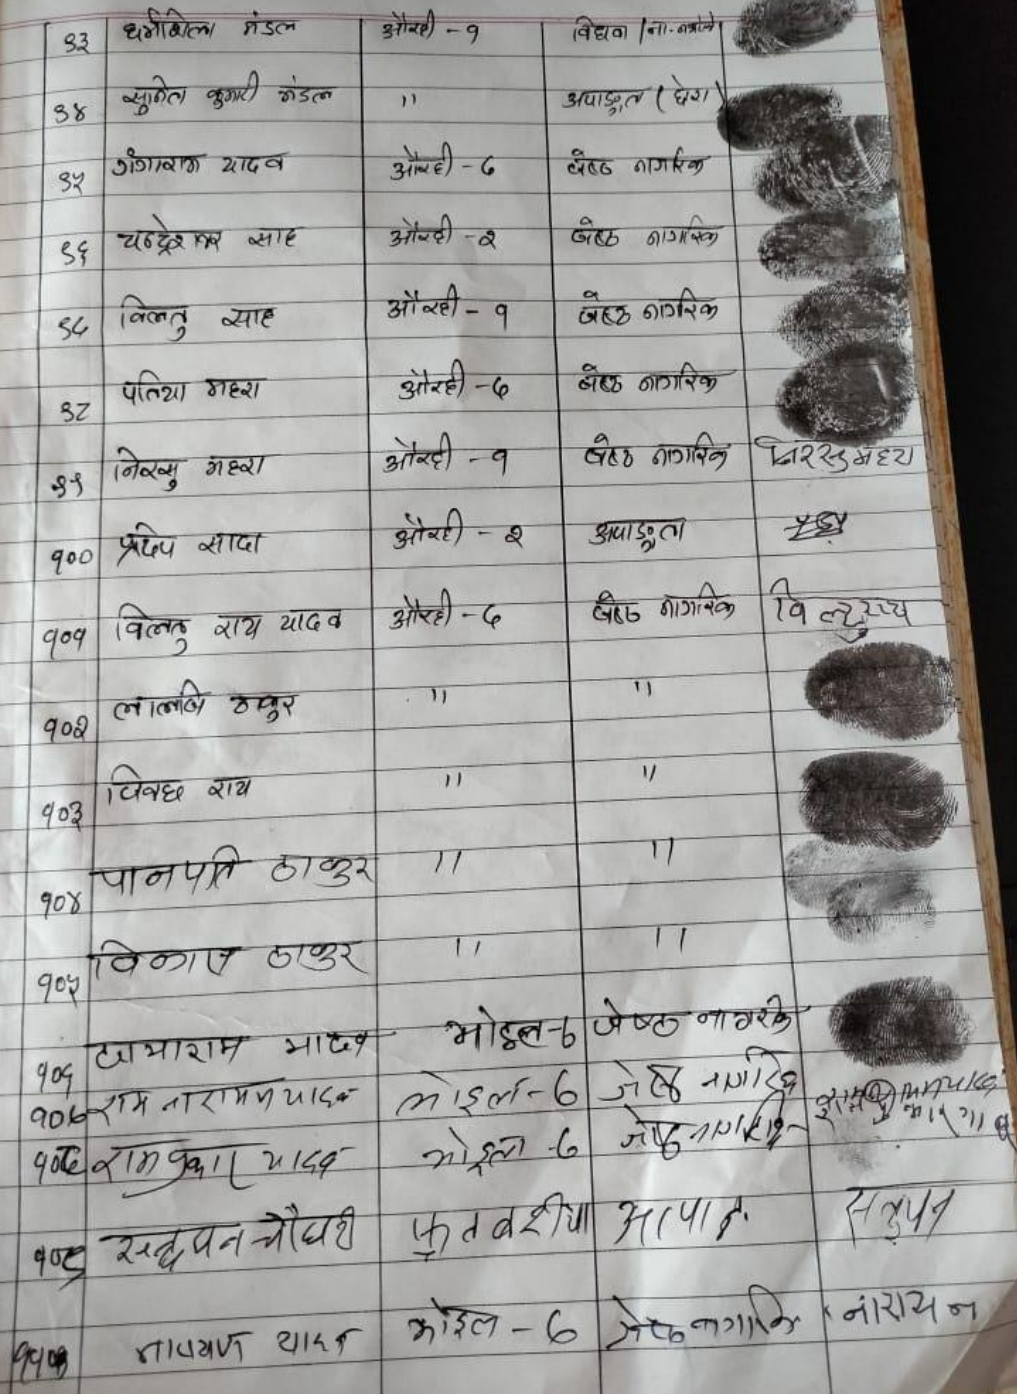 ९३ धर्मशिला मंडल औरही - १ विधवा
९४ सुनिता कुमारी मंडल " अपाङ्गता (घेरा)
९५ गंगाराम यादव औरही - ७ जेष्ठ नागरिक
९६ चन्द्रेश्वर साह औरही - २ जेष्ठ नागरिक
९७ विलतु साह औरही - १ जेष्ठ नागरिक
९८ पतिया महरा औरही - ७ जेष्ठ नागरिक
९९ निरसु महरा औरही - १ जेष्ठ नागरिक निरसु महरा
१०० प्रदिप सादा औरही - २ अपाङ्गता
१०१ विलतु राय यादव औरही - ७ जेष्ठ नागरिक
१०२ ठाकुर " "
१०३ राय " "
१०४ पानपति ठाकुर " "
१०५ विकाउ ठाकुर " "
१०६ यादव भोइल-७ जेष्ठ नागरिक
१०७ राम नारायण यादव भोइल-७ जेष्ठ नागरिक
१०८ यादव भोइल-७ जेष्ठ नागरिक
१०९ चौधरी फुतबरीया
११० नारायण यादव भोइल - ७ जेष्ठ नागरिक नारायन